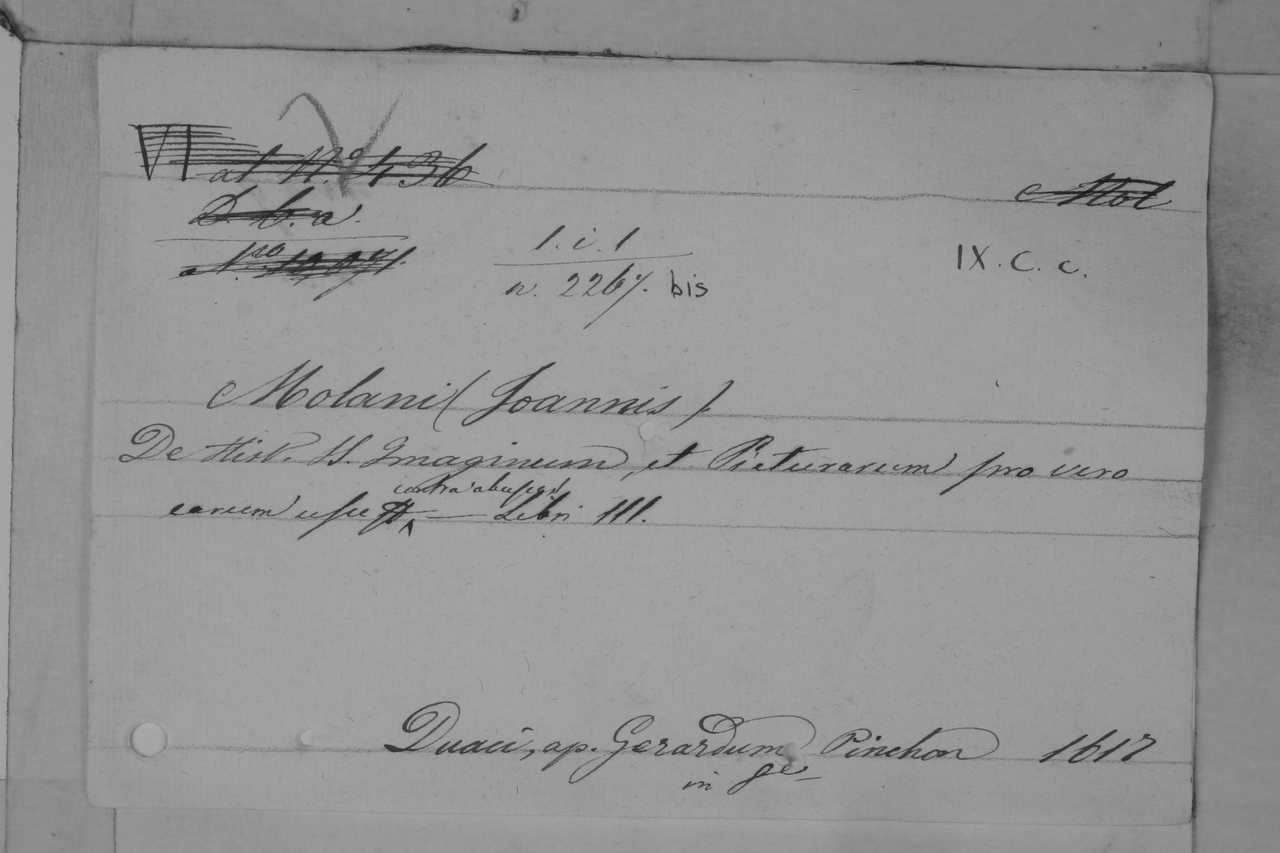 VI at N.o 436
Mol
D. b. a.
1. i. 1
IX. C. c.
n. 2267. bis
Molani (Joannis).
De Hist. SS. Imaginum, et Picturarum pro vero
contra abusus
earum usu — Libri III.
Duaci, ap. Gerardum Pinchon 1617
in 8e